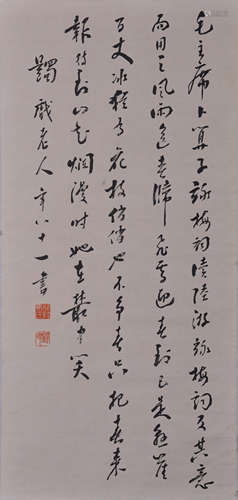 毛主席卜算子詠梅詞讀陸游詠梅詞反其意
而用之風雨送春歸飛雪迎春到已是懸崖
百丈冰猶有花枝俏俏也不爭春只把春來
報待到山花爛漫時她在叢中笑
蠲戲老人年八十一書